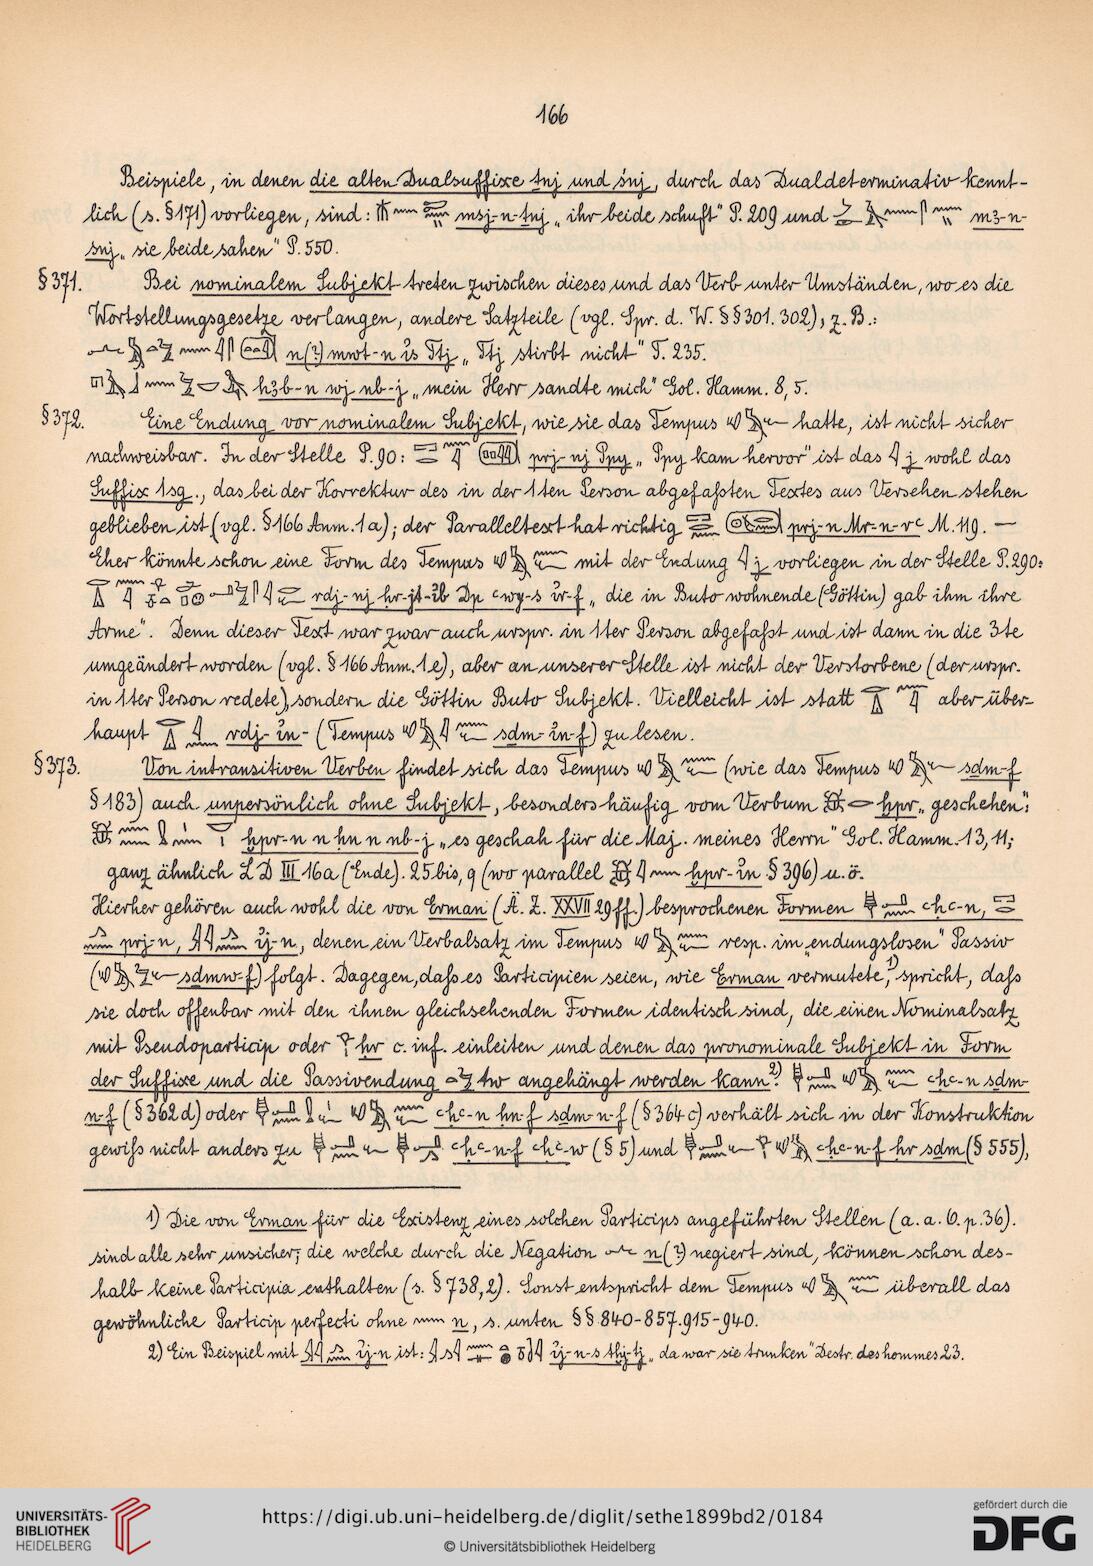 166
Beispiele, in denen die alten Dualsuffixe ṯnj und śnj, durch das Dualdeterminativ kennt-
lich (s. § 171) vorliegen, sind: msj-n-ṯnj „ihr beide schuft" P. 209 und m3-n-
snj „sie beide sahen" P. 550.
§ 371. Bei nominalem Subjekt treten zwischen dieses und das Verb unter Umständen, wo es die
Wortstellungsgesetze verlangen, andere Satzteile (vgl. Spr. d. W. §§ 301. 302), z. B.:
n(?) mwt-n ἰs Ttj „Ttj stirbt nicht" T. 235.
h3b-n wj nb-j „mein Herr sandte mich" Gol. Hamm. 8, 5.
§ 372. Eine Endung vor nominalem Subjekt, wie sie das Tempus hatte, ist nicht sicher
nachweisbar. In der Stelle P. 90: prj-nj Ppy „Ppy kam hervor" ist das j wohl das
Suffix 1sg., das bei der Korrektur des in der 1ten Person abgefaßten Textes aus Versehen stehen
geblieben ist (vgl. § 166 Anm. 1a); der Paralleltext hat richtig prj-n Mr-n-rꜥ M. 119. —
Eher könnte schon eine Form des Tempus mit der Endung j vorliegen in der Stelle P. 290:
rdj-nj ḥr-jt-ἰb Dp ꜥwy-s ἰr-f „die in Buto wohnende (Göttin) gab ihm ihre
Arme". Denn dieser Text war zwar auch urspr. in 1ter Person abgefaßt und ist dann in die 3te
umgeändert worden (vgl. § 166 Anm. 1e), aber an unserer Stelle ist nicht der Verstorbene (der urspr.
in 1ter Person redete), sondern die Göttin Buto Subjekt. Vielleicht ist statt aber über-
haupt rdj-ἰn- (Tempus sḏm-ἰn-f) zu lesen.
§ 373. Von intransitiven Verben findet sich das Tempus (wie das Tempus sḏm-f
§ 183) auch unpersönlich ohne Subjekt, besonders häufig vom Verbum ḫpr „geschehen":
ḫpr-n n ḥn n nb-j „es geschah für die Maj. meines Herrn" Gol. Hamm. 13, 11;
ganz ähnlich L D III 16a (Ende). 25 bis, q (wo parallel ḫpr-ἰn § 396) u. ö.
Hierher gehören auch wohl die von Erman (Ä. Z. XXVII 29 ff.) besprochenen Formen ꜥḥꜥ-n,
prj-n, ἰj-n, denen ein Verbalsatz im Tempus resp. im „endungslosen" Passiv
(sḏmw-f) folgt. Dagegen, daß es Participien seien, wie Erman vermutete,1) spricht, daß
sie doch offenbar mit den ihnen gleichsehenden Formen identisch sind, die einen Nominalsatz
mit Pseudoparticip oder ḥr c. inf. einleiten und denen das pronominale Subjekt in Form
der Suffixe und die Passivendung tw angehängt werden kann.2) ꜥḥꜥ-n sḏm-
n-f (§ 362 d) oder ꜥḥꜥ-n ḥn-f sḏm-n-f (§ 364 c) verhält sich in der Konstruktion
gewiß nicht anders zu ꜥḥꜥ-n-f ꜥḥꜥ-w (§ 5) und ꜥḥꜥ-n-f ḥr sḏm (§ 555),
1) Die von Erman für die Existenz eines solchen Particips angeführten Stellen (a. a. O. p. 36).
sind alle sehr unsicher; die welche durch die Negation n(?) negiert sind, können schon des-
halb keine Participia enthalten (s. § 738, 2). Sonst entspricht dem Tempus überall das
gewöhnliche Particip perfecti ohne n, s. unten §§ 840-857. 915-940.
2) Ein Beispiel mit ἰj-n ist: ἰj-n-s tḫj-tj „da war sie trunken" Destr. des hommes 23.
UNIVERSITÄTS-
BIBLIOTHEK
HEIDELBERG
https://digi.ub.uni-heidelberg.de/diglit/sethe1899bd2/0184
© Universitätsbibliothek Heidelberg
gefördert durch die
DFG